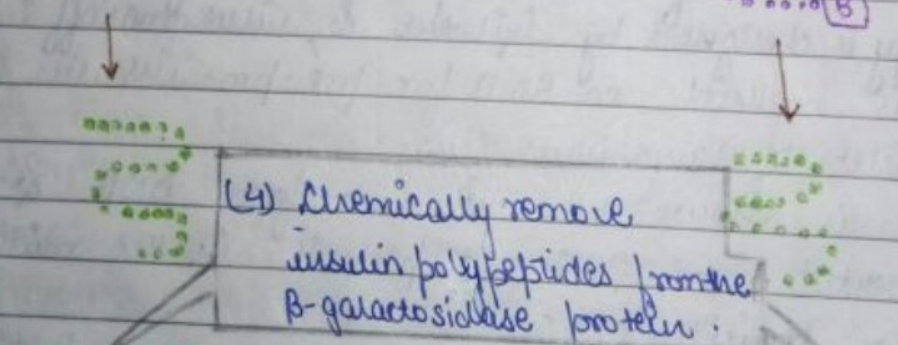 B
(4) Chemically remove
insulin polypeptides from the
β-galactosidase protein.